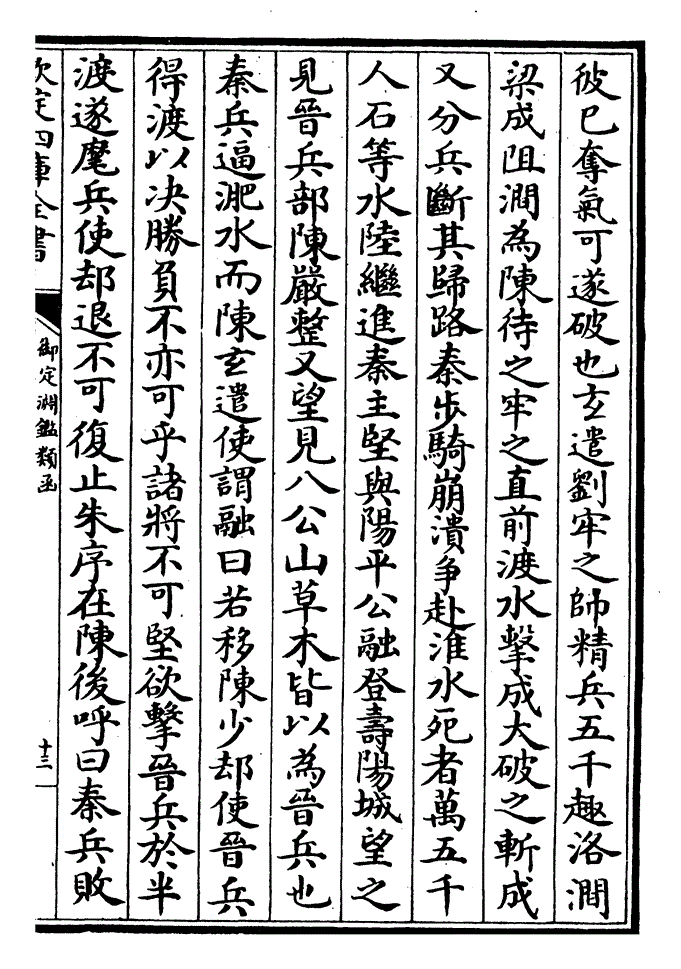 彼已奪氣可遂破也玄遣劉牢之帥精兵五千趣洛澗
梁成阻澗為陳待之牢之直前渡水擊成大破之斬成
又分兵斷其歸路秦步騎崩潰争赴淮水死者萬五千
人石等水陸繼進秦主堅與陽平公融登壽陽城望之
見晉兵部陳嚴整又望見八公山草木皆以為晉兵也
秦兵逼淝水而陳玄遣使謂融曰若移陳少却使晉兵
得渡以決勝負不亦可乎諸將不可堅欲擊晉兵於半
渡遂麾兵使却退不可復止朱序在陳後呼曰秦兵敗
欽定四庫全書
御定淵鑑類函
十三